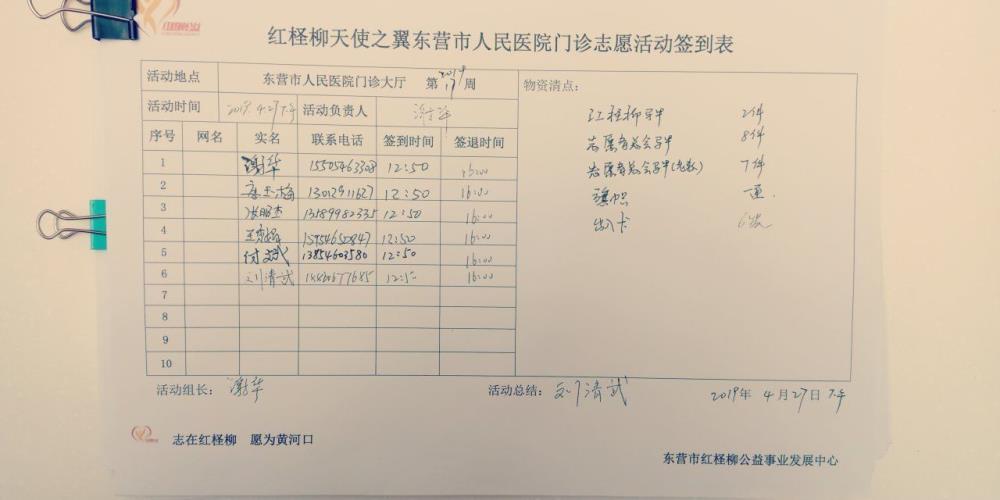 红柽柳天使之翼东营市人民医院门诊志愿活动签到表
活动地点 东营市人民医院门诊大厅 第2019 17周 物资清点：
活动时间 2019.4.27下午 活动负责人
红柽柳马甲 2件
序号 网名 实名 联系电话 签到时间 签退时间
志愿者总会马甲 8件
1 谢华 15505463308 12:50 16:00
志愿者总会马甲(老款) 7件
2 13012911627 12:50 16:00
旗帜 一面.
3 张昭杰 13589982335 12:50 16:00
出入卡
4 15954650847 12:50 16:00
5 付文斌 13854603580 12:50 16:00
6 刘清武 12:50 16:00
7
8
9
10
活动组长： 谢华 活动总结： 刘清武 2019年 4月27日 下午
志在红柽柳 愿为黄河口
东营市红柽柳公益事业发展中心